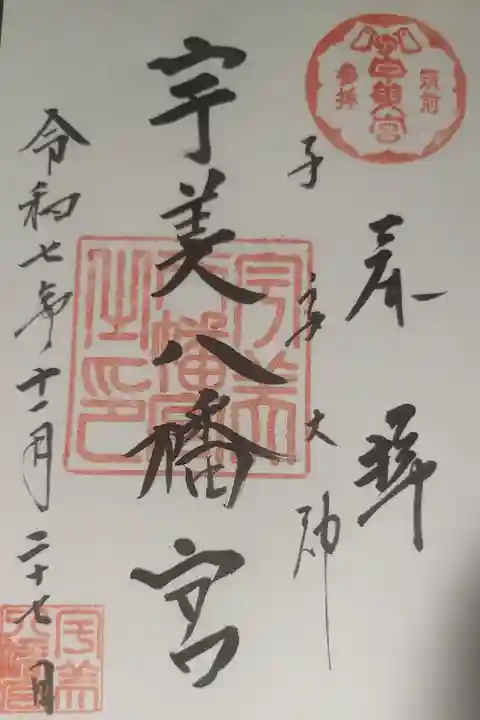 筑前
宇美宮
参拝
奉拝
子安大神
宇美八幡宮
宇美
八幡宮
之印
令和七年十一月二十七日